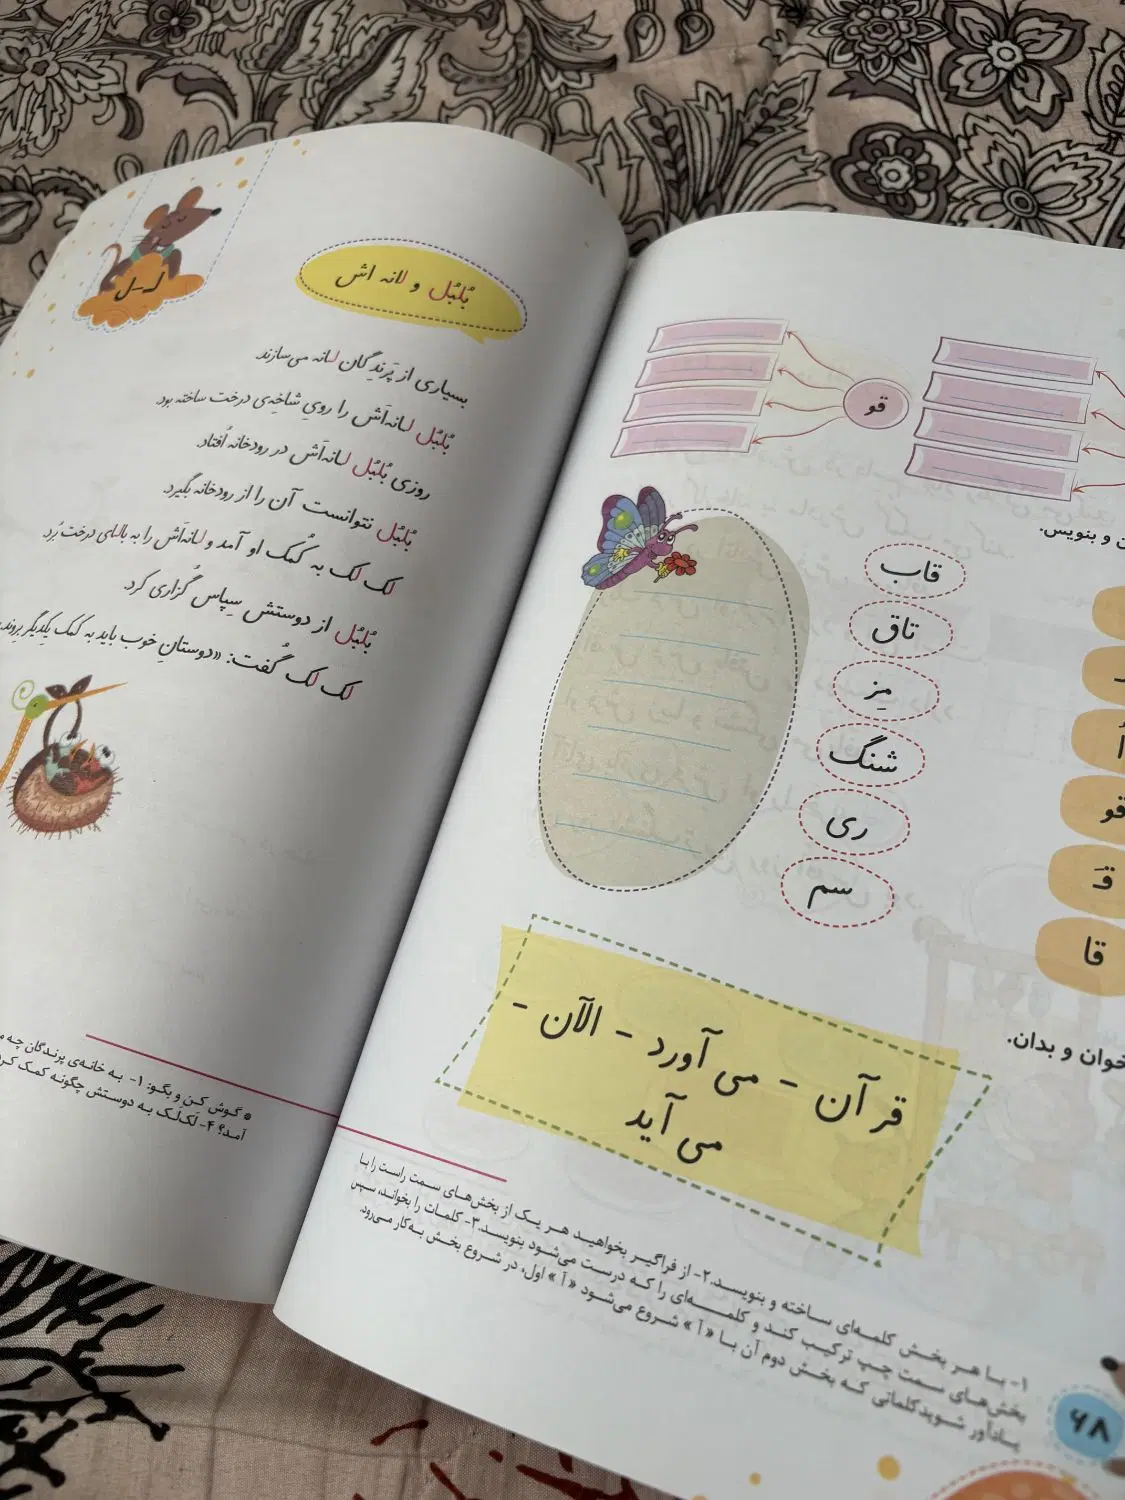 قو
ن و بنویس.
قاب
تاق
مِز
شنگ
ری
سم
اُ
قو
قَـ
قا
خوان و بدان.
قرآن - می آورد - الآن -
می آید
۱- با هر بخش کلمه‌ای ساخته و بنویسد.۲- از فراگیر بخواهید هر یک از بخش‌های سمت راست را با
بخش‌های سمت چپ ترکیب کند و کلمه‌ای را که درست می‌شود بنویسد.۳- کلمات را بخواند، سپس
یادآور شویدکلماتی که بخش دوم آن با « آ » شروع می‌شود « آ » اول، در شروع بخش به‌کار می‌رود.
۶۸
لـ-ل
بُلبُل و لانه اش
بسیاری از پَرَندِگان لانه می‌سازند
بُلبُل لانه‌اَش را رویِ شاخِه‌ی درخت ساخته بود.
روزی بُلبُل لانه‌اَش در رودخانه اُفتاد.
بُلبُل نتوانست آن را از رودخانه بگیرد.
لک لک به کُمک او آمد و لانه‌اَش را به بالای درخت بُرد
بُلبُل از دوستش سِپاس گُزاری کرد.
لک لک گُفت: «دوستانِ خوب باید به کمک یِکدیگر بِروند.
* گوش کن و بگو: ۱- به خانه‌ی پرندگان چه
آمد؟ ۴- لَک‌لَک به دوستش چگونه کمک کرد